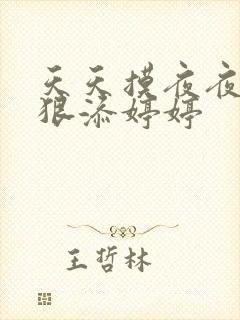 天天摸夜夜
狠添婷婷
王哲林